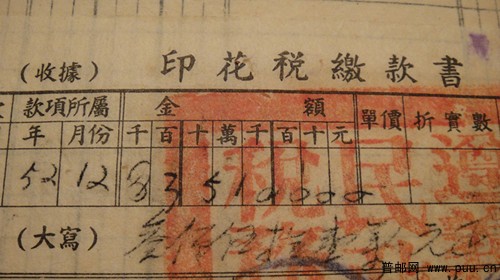 (收據) 印花税繳款書
款項所屬 金 額 單價 折實數
年 月份 千百十萬千百十元
52 12 3510000
(大寫) 叁佰伍拾壹萬元正
普邮网 www.puu.cn